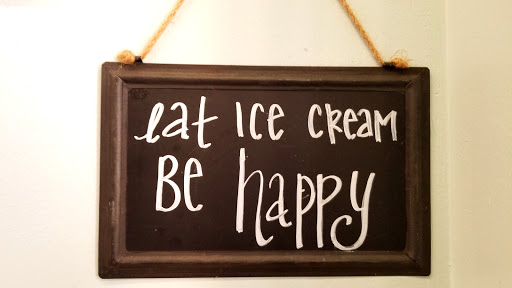 eat Ice cream
Be happy